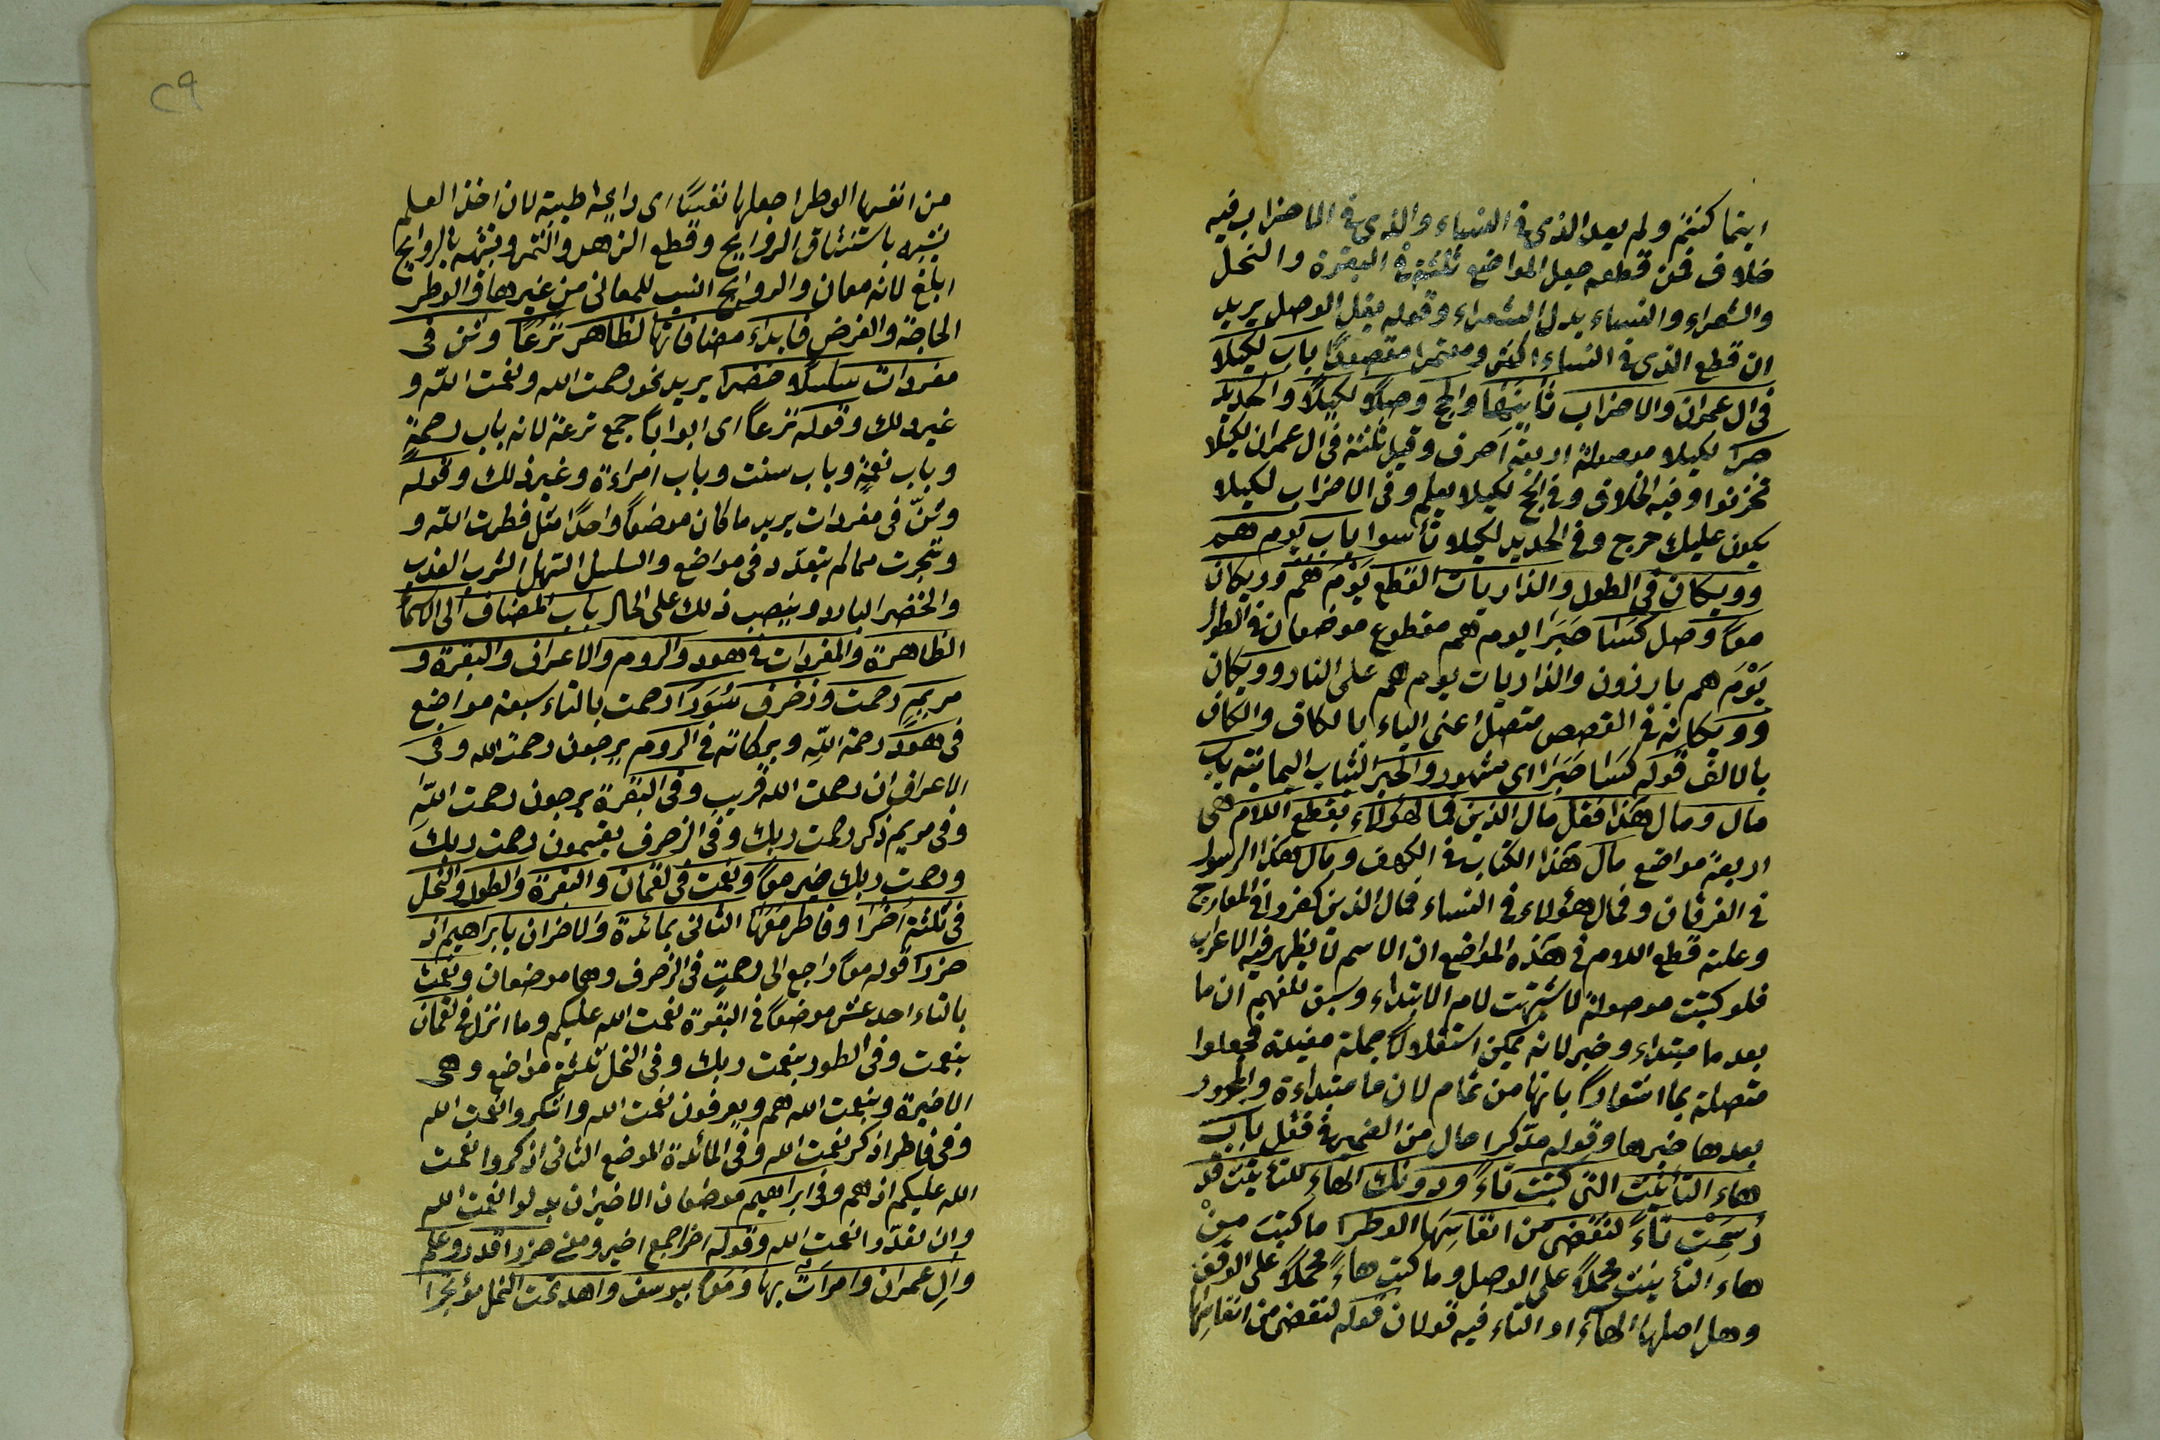 اينما كنتم ولم يعد الذى فى النساء والذى فى الاحزاب فيه
خلاف فمن قطعه جعل المواضع ثلثة فى البقرة والنحل
والشعراء والنساء بدل الشعراء وقوله يقل الوصل يريد
ان قطع الذى فى النساء اكثر ومعتمرا مقصودًا باب لكيلا
فى ال عمران والاحزاب ثانيها والحج وصلًا لكيلا والحديد
جرا لكيلا موصولة اربعة احرف وقيل ثلثة فى ال عمران لكيلا
تحزنوا وفيه الخلاف وفى الحج لكيلا يعلم وفى الاحزاب لكيلا
يكون عليك حرج وفى الحديد لكيلا تأسوا باب يوم هم
وويكان فى الطول والذاريات القطع يوم هم وويكان
معًا وصل كسا حبرا يوم هم مقطوع موضعان فى الطول
يوم هم بارزون والذاريات يوم هم على النار وويكان
وويكانه فى القصص متصل اعنى الياء بالكاف والكاف
بالالف قوله كسا حبرا اى مشهور والحبر الثياب اليمانية باب
مال ومال هذا فقل مال الذين فمال هؤلاء بقطع اللام هى
اربعة مواضع مال هذا الكتاب فى الكهف ومال هذا الرسول
فى الفرقان وفمال هؤلاء فى النساء فمال الذين كفروا فى المعارج
وعلة قطع اللام فى هذه المواضع ان الاسم لا يظهر فيه الاعراب
فلو كتبت موصولة لاشبهت لام الابتداء وسبق للفهم ان ما
بعد ما مبتداء وخبر لانه يمكن استقلالًا جملة مفيدة فجعلوا
متصلة بما اشعارًا بانها من تمام لان ما مبتداءة والمجرور
بعدها خبرها وقوله مدكرا حال من الضمير فى فقل باب
هاء التأنيث التى كتبت تاءً ودونك الهاء للتأنيث قد
رسمت تاءً لتقضى من انفاسها الوطرا ما كتبت من
هاء التأنيث محملًا على الوصل وما كتب هاءً محملًا على الوقف
وهل اصلها الهاء او التاء فيه قولان قوله لتقضى من انفاسها
من انفسها الوطرا جعل لها نفسًا اى رايحة طيبة لان اخذ العلم
يشبه باستنشاق الروايح وقطع الزهر والثمر وشبهه بالروايح
ابلغ لانه معان والروايح انسب للمعانى من غيرها والوطر
الحاجة والغرض فابداء مضافاتها لظاهر ترعًا وثن فى
مفردات سلسلًا خضرا يريد نحو رحمت الله ونعمت الله و
غير ذلك وقوله ترعًا اى ابوابًا جمع ترعة لانه باب رحمةٍ
وباب نعمةٍ وباب سنت وباب امراءة وغير ذلك وقوله
وثنّ فى مفردات يريد ما كان موضعًا واحدًا مثل فطرت الله و
وشجرت مما لم يتعدّد فى مواضع والسلسل السهل الشرب العذب
والخضر البارد وينصب ذلك على الحال باب المضاف الى الاسماء
الظاهرة والمفردات فى هود والروم والاعراف والبقرة و
مريم رحمت وزخرف سُوَرَا رحمت بالتاء سبعة مواضع
فى هود رحمة اللّهِ وبركاته فى الروم يرجون رحمت الله وفى
الاعراف ان رحمت الله قريب وفى البقرة يرجون رحمت اللّهِ
وفى مريم ذكر رحمت ربك وفى الزخرف يقسمون رحمت ربك
ورحمت ربك خير معًا ونعمت فى لقمان والبقرة والطور والنحل
فى ثلثة أُخَرَا وفاطر معها الثانى بمائدة والاخران بابراهيم اذ
حزرا قوله معًا راجع الى رحمت فى الزخرف وهما موضعان ونعمت
بالتاء احد عشر موضعًا فى البقرة نعمت الله عليكم وما انزل فى لقمان
بنعمت وفى الطور بنعمت ربك وفى النحل ثلثة مواضع وهى
الاخيرة وبنعمت الله هم ويعرفون نعمت الله واشكروا نعمت الله
وفى فاطر اذكر نعمت الله وفى المائدة الموضع الثانى اذكروا نعمت
الله عليكم اذ هم وفى ابراهيم موضعان الاخيران بدلوا نعمت الله
وان تعدّوا نعمت الله وقوله اخرا جمع اخير ومعنى حزرا قدر وعلم
وآل عمران وامرات بها ومعًا بيوسف واهد تحت النحل مؤتجرا